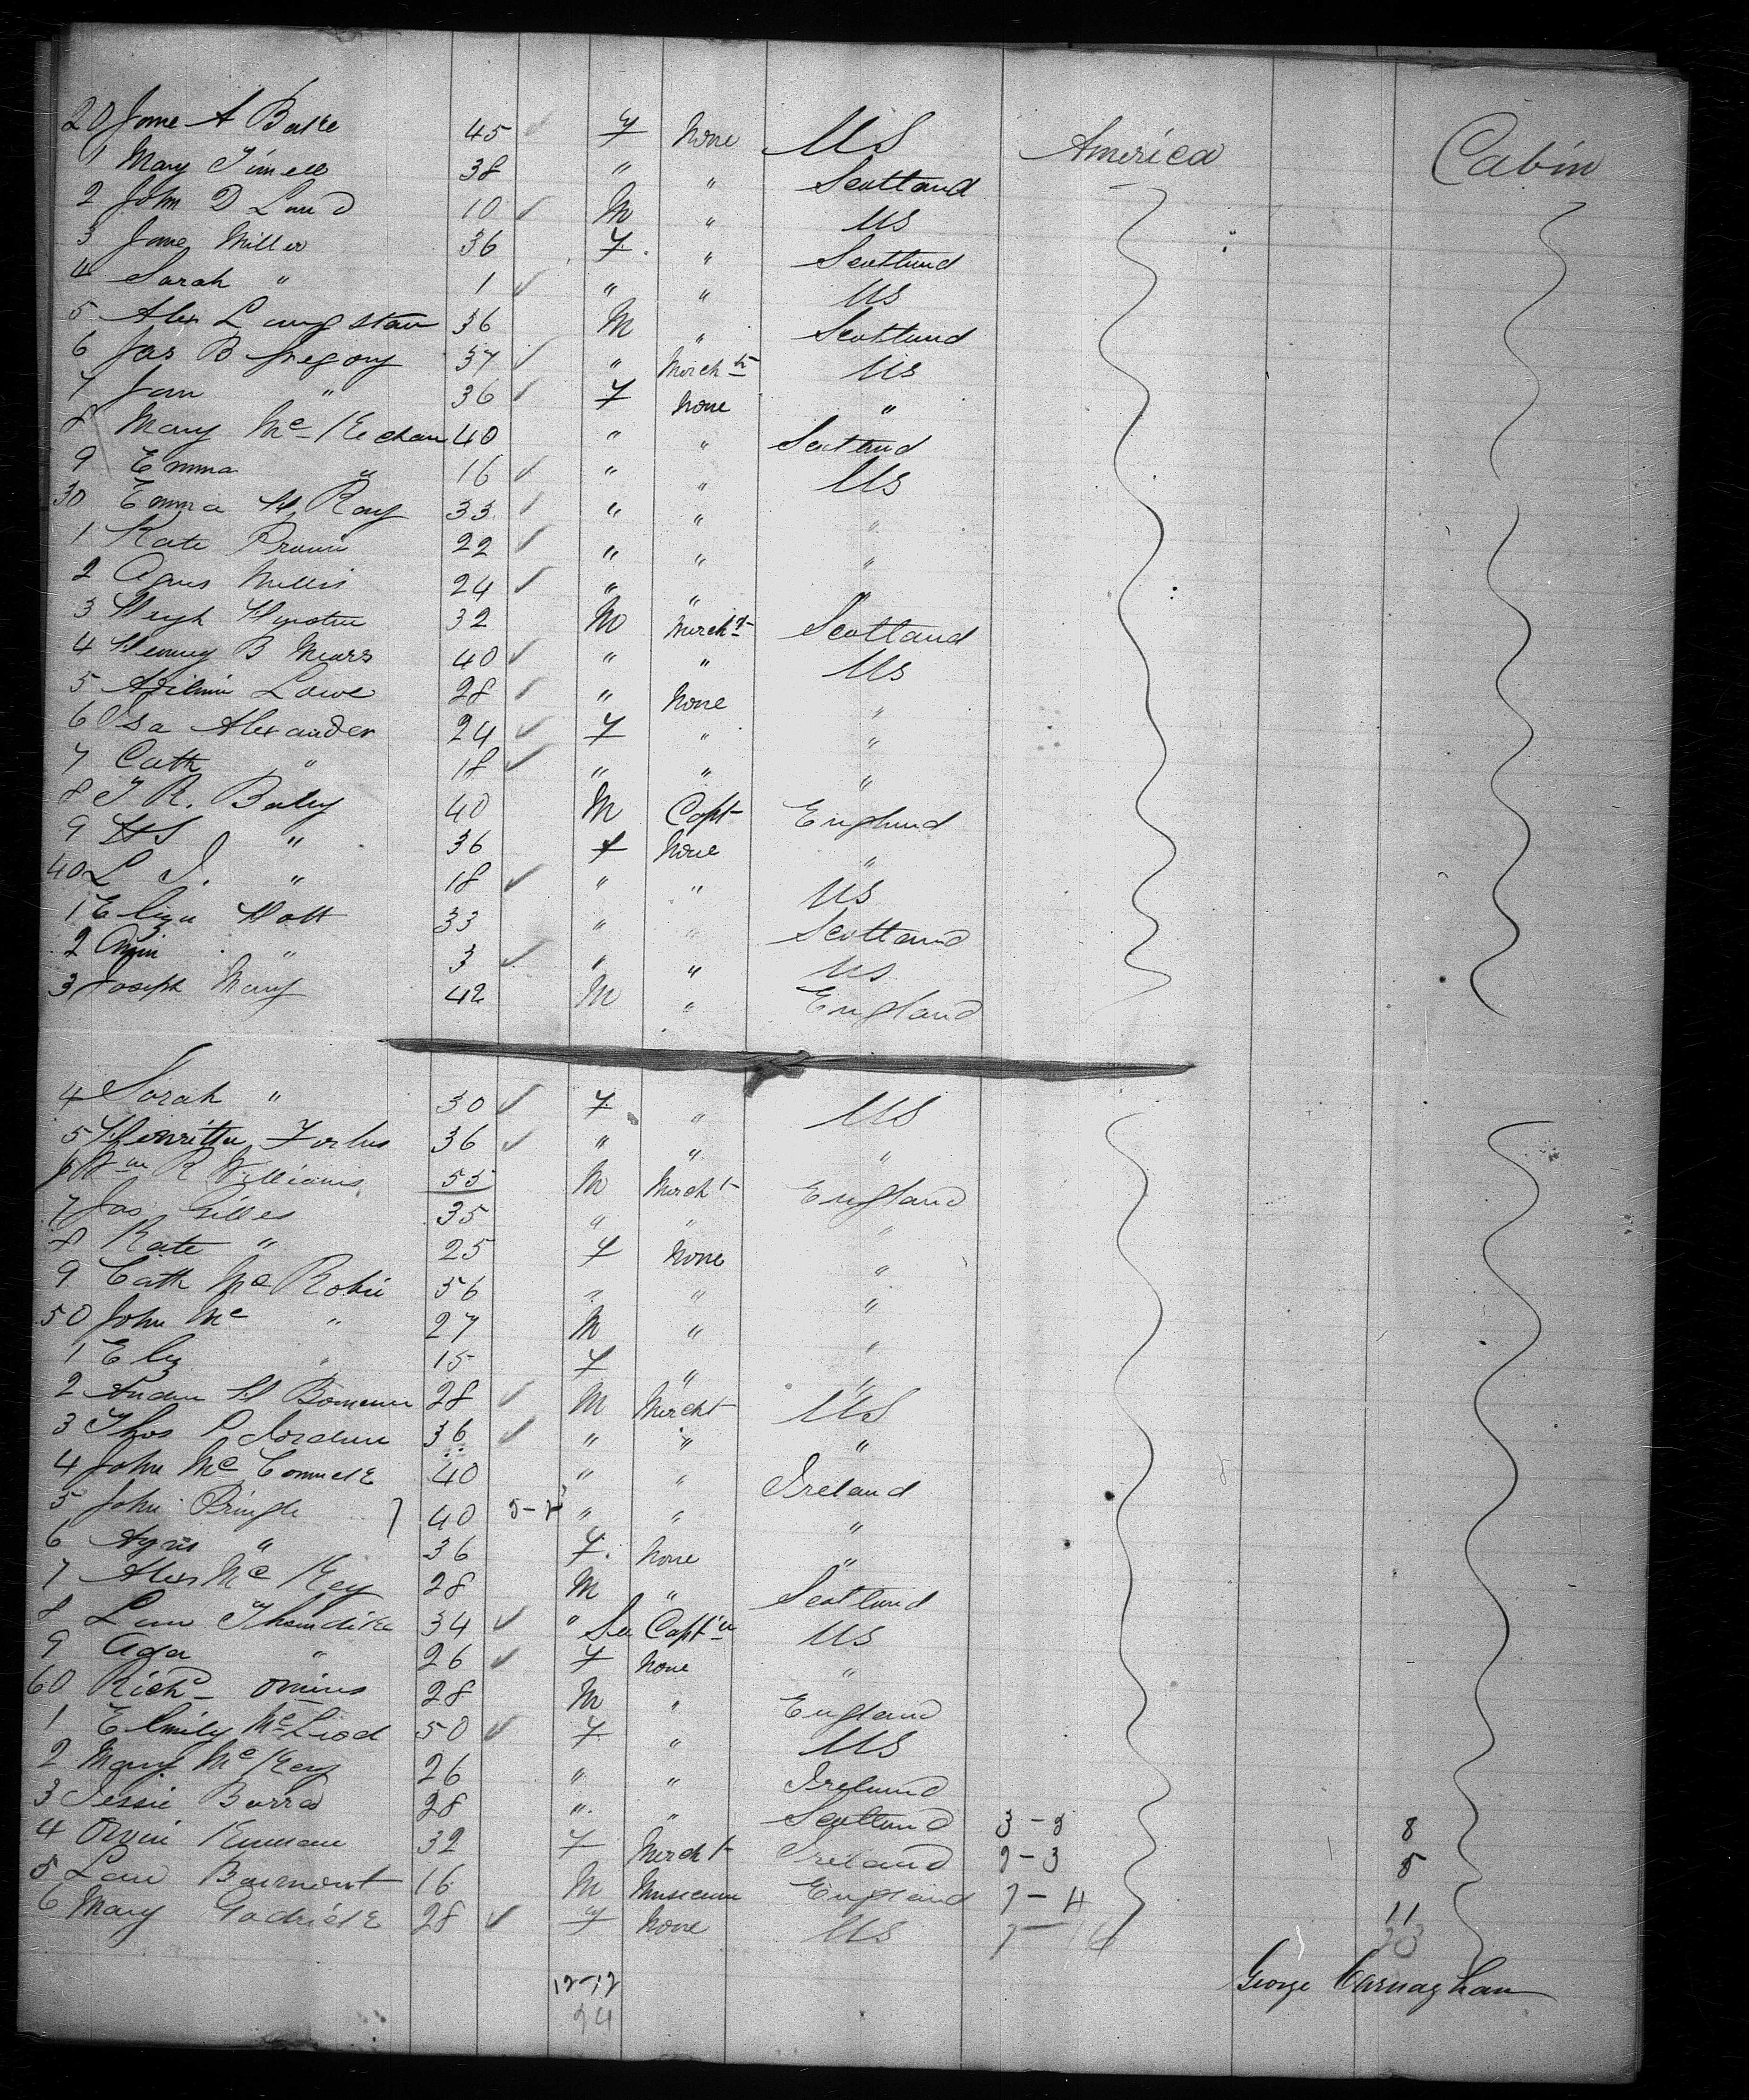 20 Jane A Bake 45 F None US America Cabin
1 Mary 38 " " Scotland
2 John D Laud 10 M " US
3 Jane Miller 36 F " Scotland
4 Sarah " 1 " " US
5 Alex Langstan 36 M " Scotland
6 Jas B Gregory 37 " Mercht US
7 Jan " 36 F None "
8 Mary Mc Kechan 40 " " Scotland
9 Emma " 16 " " US
30 Emma H Ray 33 " " "
1 Kate Brown 22 " " "
2 Agnes Millis 24 " " "
3 Hugh 32 M Mercht Scotland
4 Henry B Mears 40 " " US
5 Lowe 28 " None "
6 Isa Alexander 24 F " "
7 Cath " 18 " " "
8 T R. Baley 40 M Capt England
9 H S " 36 F None "
40 L J. " 18 " " US
1 Eliza Hott 33 " " Scotland
2 Anni " 3 " " US
3 Joseph Many 42 M " England
4 Sarah " 30 F " US
5 Henritta Forbus 36 " " "
6 Wm R Williams 55 M Mercht England
7 Jas Gilles 35 " " "
8 Kate " 25 F None "
9 Cath Mc Robie 56 " " "
50 John Mc " 27 M " "
1 Eliz " 15 F " "
2 Andrew H Bomenn 28 M Mercht US
3 Thos P Jordun 36 " " "
4 John Mc Connell 40 " " Ireland
5 John Pringle 40 " " "
6 Agnes " 36 F. None "
7 Alex Mc Key 28 M " Scotland
8 Thorndike 34 " Sea Capt'n US
9 Ada " 26 F None "
60 Richd 28 M " England
1 Emily McLeod 50 F " US
2 Mary Mc Key 26 " " Ireland
3 Jessie Barrd 28 " " Scotland 3-5 8
4 32 F Mercht Ireland 2-3 5
5 Law Beaumont 16 M Musician England 7-4 11
6 Mary 28 F None US
George Carnaghan
12-12
24